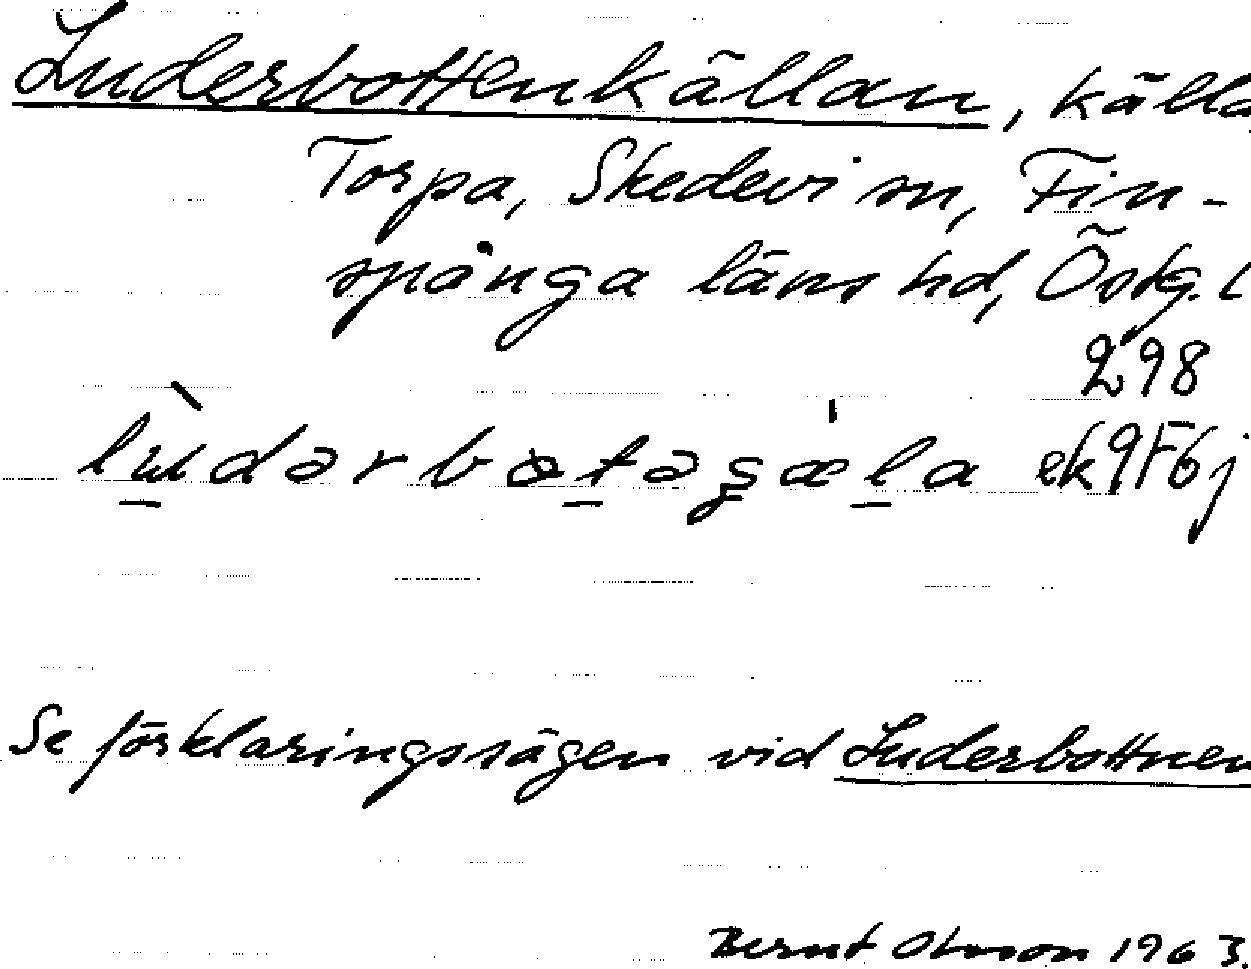 Luderbottenkällan, källa
Torpa, Skedevi sn, Fin-
spånga läns hd, Östg. l
298
ek 9F6j
Se förklaringssägen vid Luderbottnen
Bernt Olsson 1963.